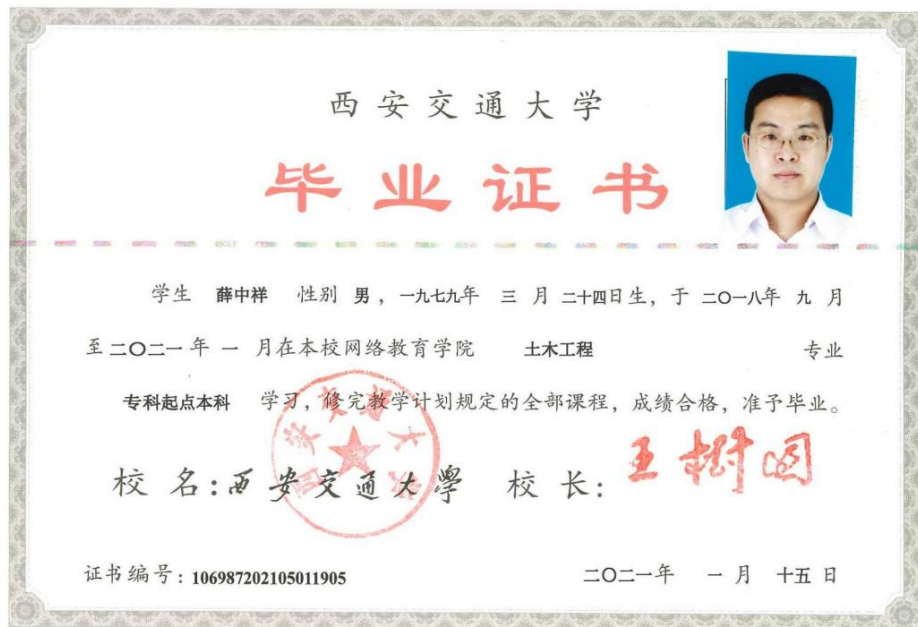 西安交通大学
毕业证书
学生 薛中祥 性别 男，一九七九年 三 月 二十四日生，于 二〇一八年 九 月
至二〇二一年 一 月在本校网络教育学院 土木工程 专业
专科起点本科 学习，修完教学计划规定的全部课程，成绩合格，准予毕业。
校 名：西安交通大學 校 长：王树国
西安交通大学
证书编号：106987202105011905 二〇二一年 一 月 十五 日